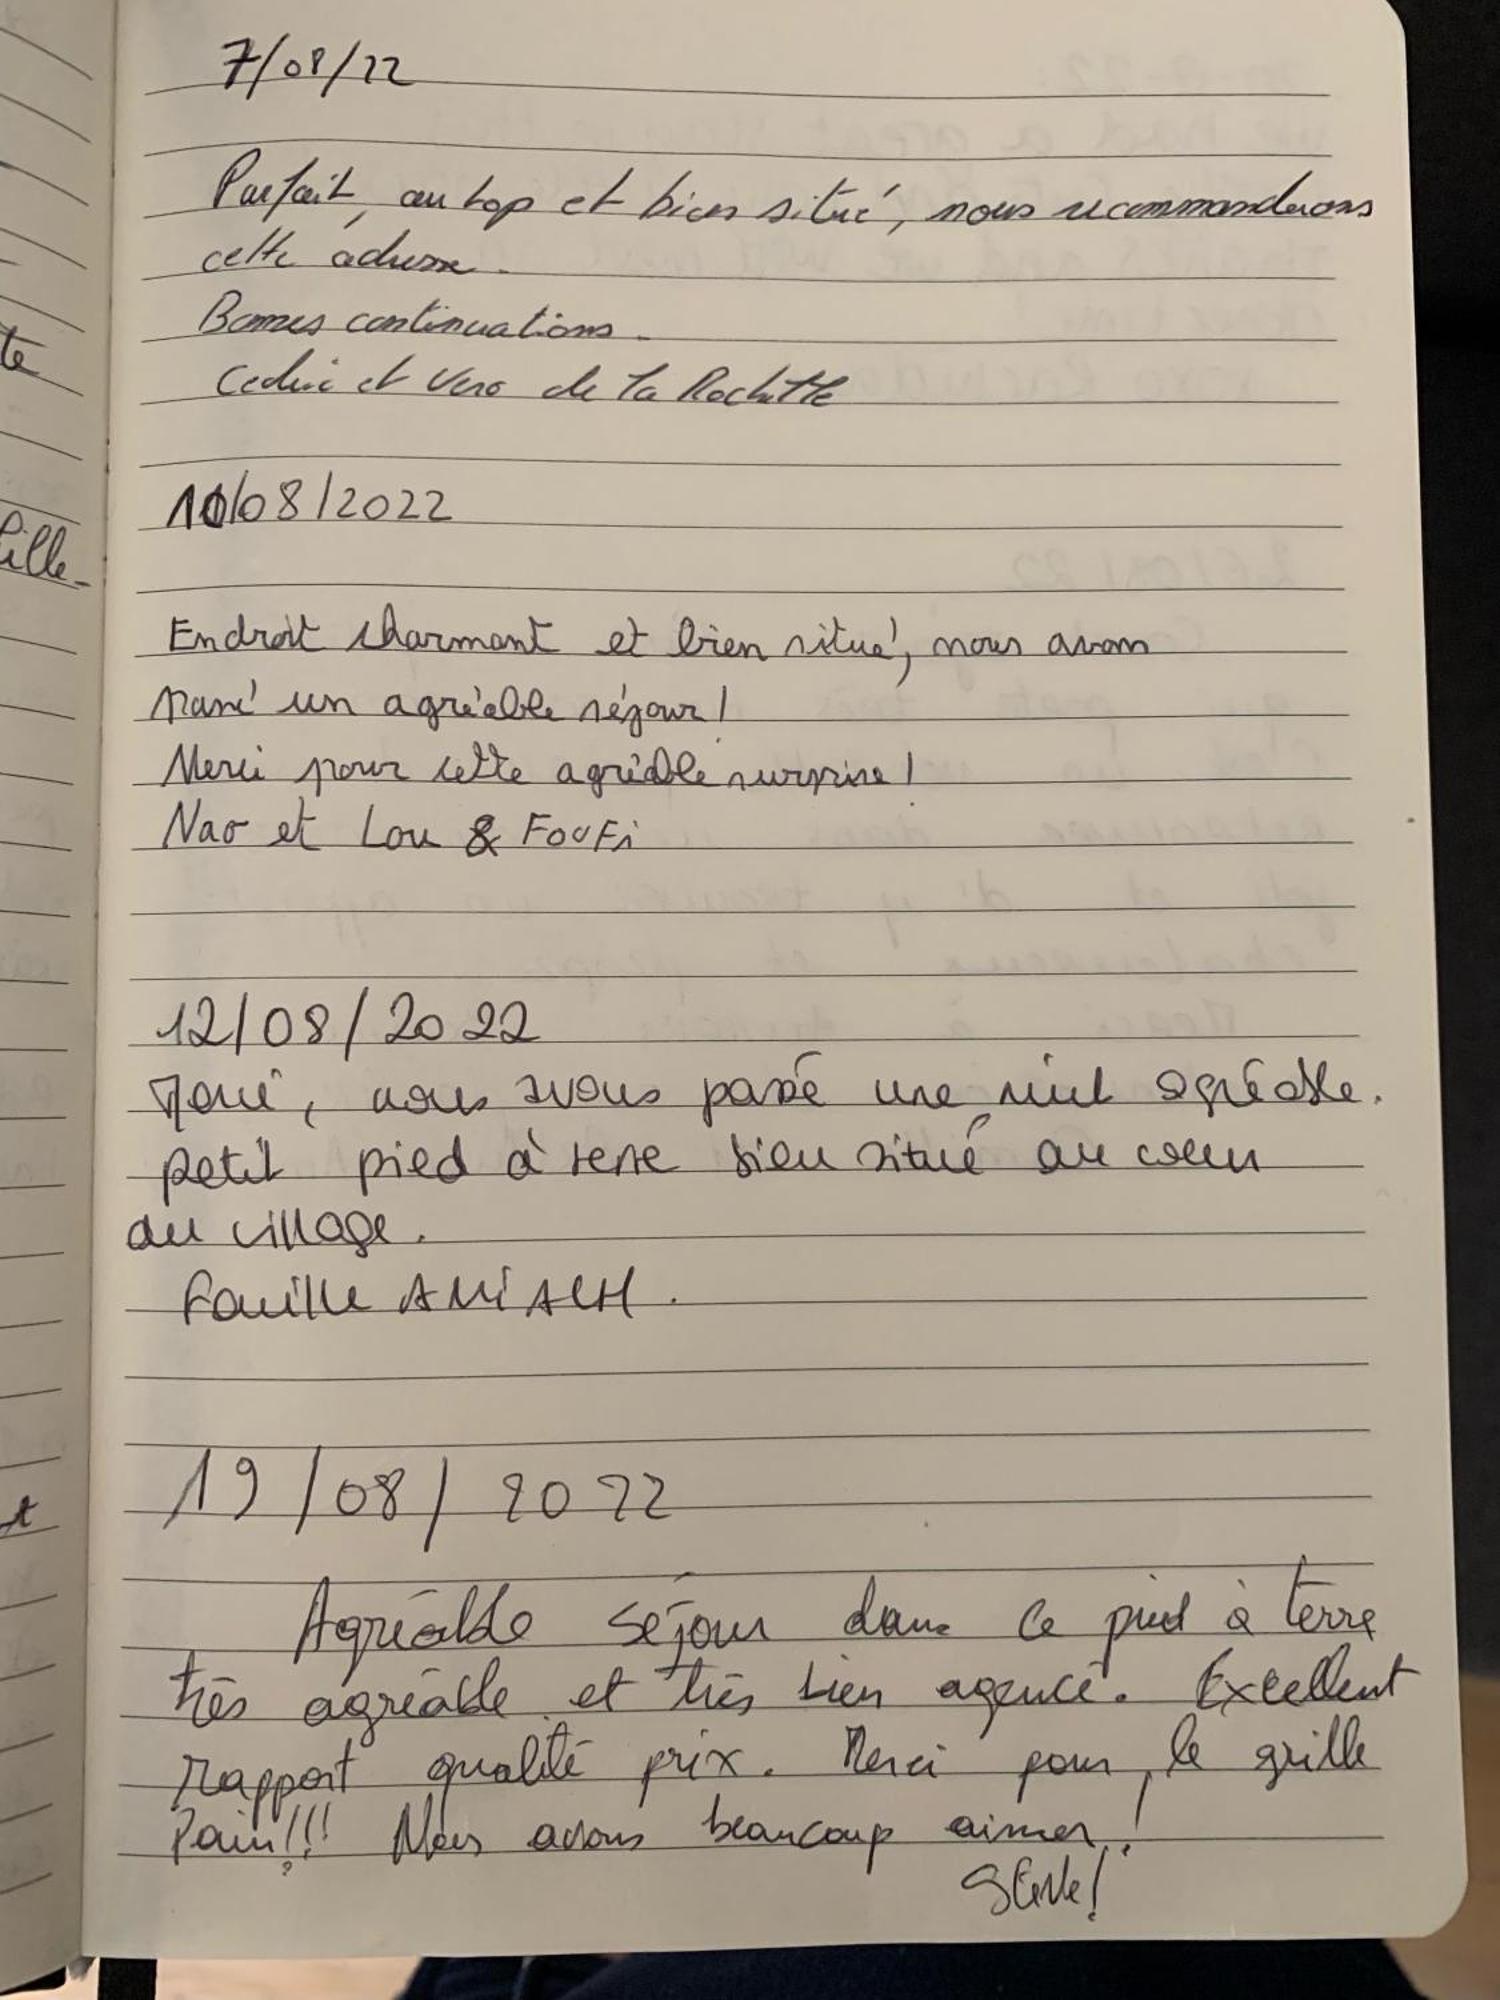 7/08/22
Parfait, au top et bien situé, nous recommanderons
cette adresse.
Bonnes continuations.
Cedric et Vero de la Rochette
10/08/2022
Endroit charmant et bien situé, nous avons
passé un agréable séjour!
Merci pour cette agréable surprise!
Nao et Lou & FouFi
12/08/2022
nous avons passé une nuit agréable.
petit pied à terre bien situé au coeur
du village.
Famille
19/08/2022
Agréable séjour dans ce pied à terre
très agréable et très bien agencé. Excellent
rapport qualité prix. Merci pour le grille
Pain!!! Nous avons beaucoup aimer!
te
fille